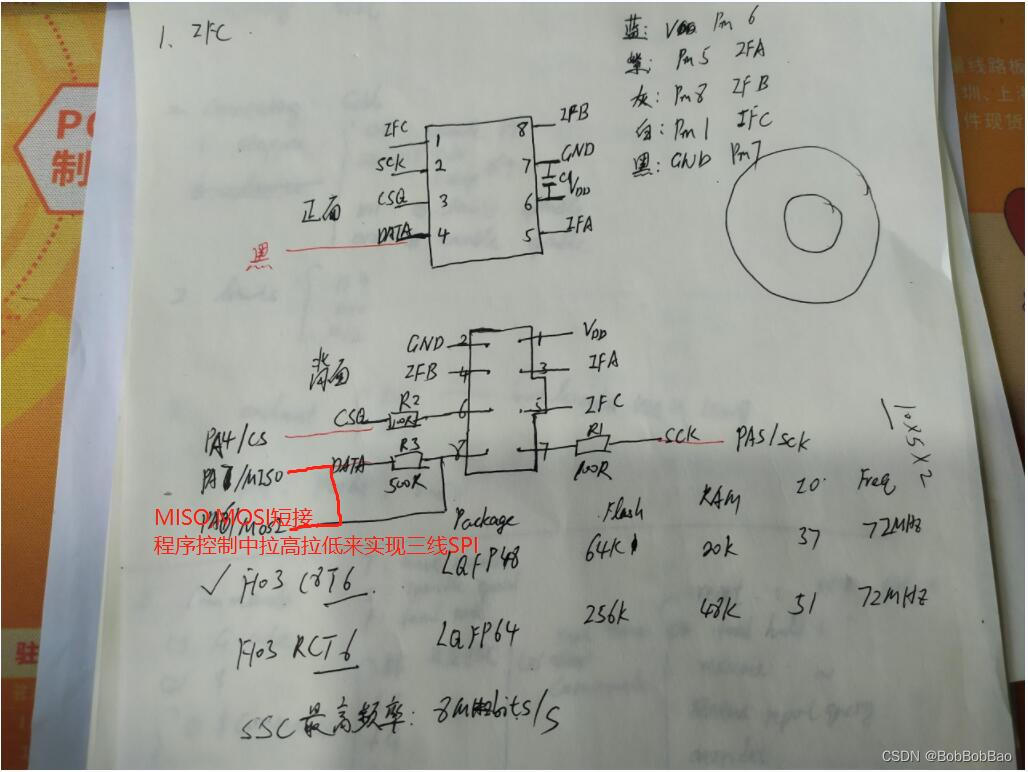 1、IFC
蓝: VDD Pin 6
紫: Pin 5 IFA
灰: Pin 8 IFB
白: Pin 1 IFC
黑: GND Pin 7
正面
IFC 1
SCK 2
CSQ 3
DATA 4
黑
8 IFB
7 GND
C
6 VDD
5 IFA
背面
GND 2
1 VDD
IFB 4
3 IFA
5 IFC
PA4/CS
CSQ
R2
6
/MISO
DATA
R3
500R
8
7
R1
100R
SCK
PA5/SCK
/MOSI
MISO MOSI短接
程序控制中拉高拉低来实现三线SPI
10X5X2
Package Flash RAM IO Freq
✓ F103 C8T6 LQFP48 64K 20K 37 72MHz
F103 RCT6 LQFP64 256K 48K 51 72MHz
SSC最高频率: 8Mbits/s
PC
制
驻
件现货
CSDN @BobBobBao